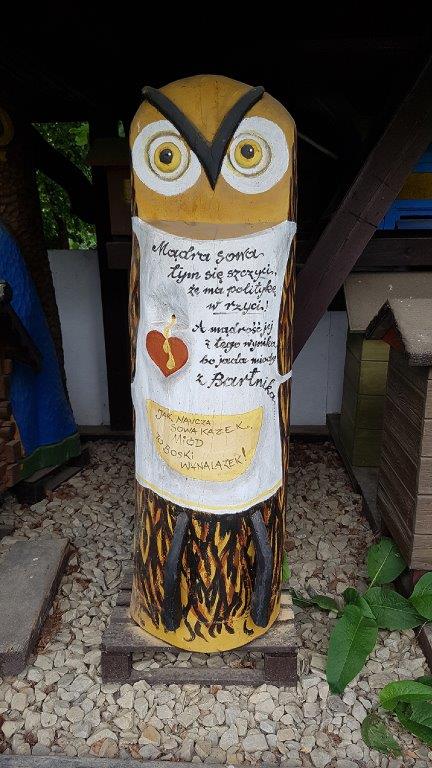 Mądra sowa
tym się szczyci,
że ma politykę
w rzyci!
A mądrość jej
z tego wynika,
bo jada miody
z Bartnika
JAK NAUCZA
SOWA KAZEK,
MIÓD
TO BOSKI
WYNALAZEK!